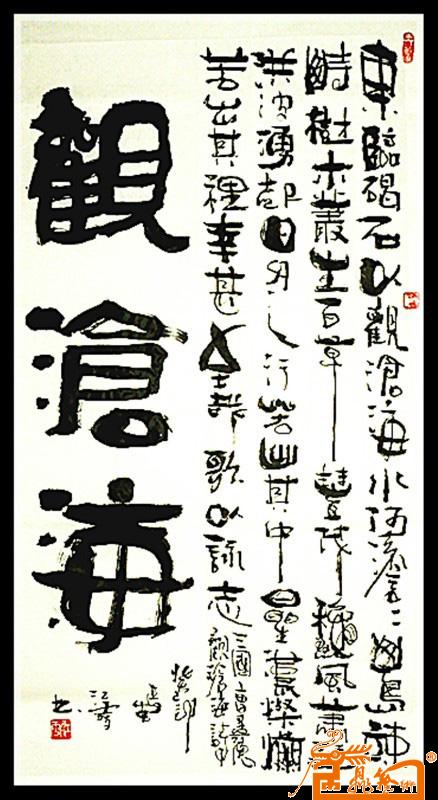 東臨碣石以觀滄海水何澹〻山島竦
峙樹木叢生百草豐茂穐風蕭瑟
洪波湧起日月之行若出其中星漢燦爛
若出其裡幸甚至哉歌以詠志
三國曹孟德
觀滄海詩
觀滄海